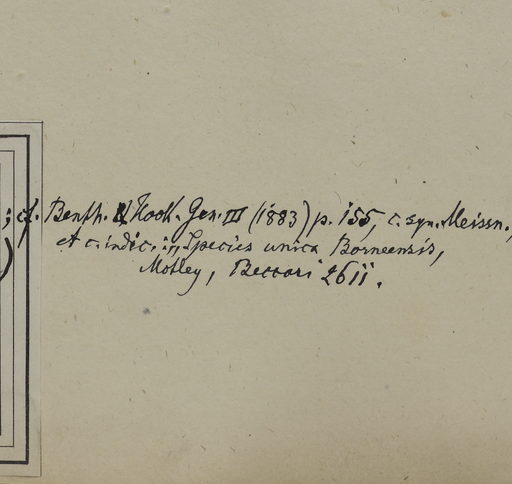 ; cf. Benth. & Hook. Gen. III (1883) p. 155, c. syn. Meissn.,
et c. indic. „Species unica Borneensis,
Motley, Beccari 2611.
)